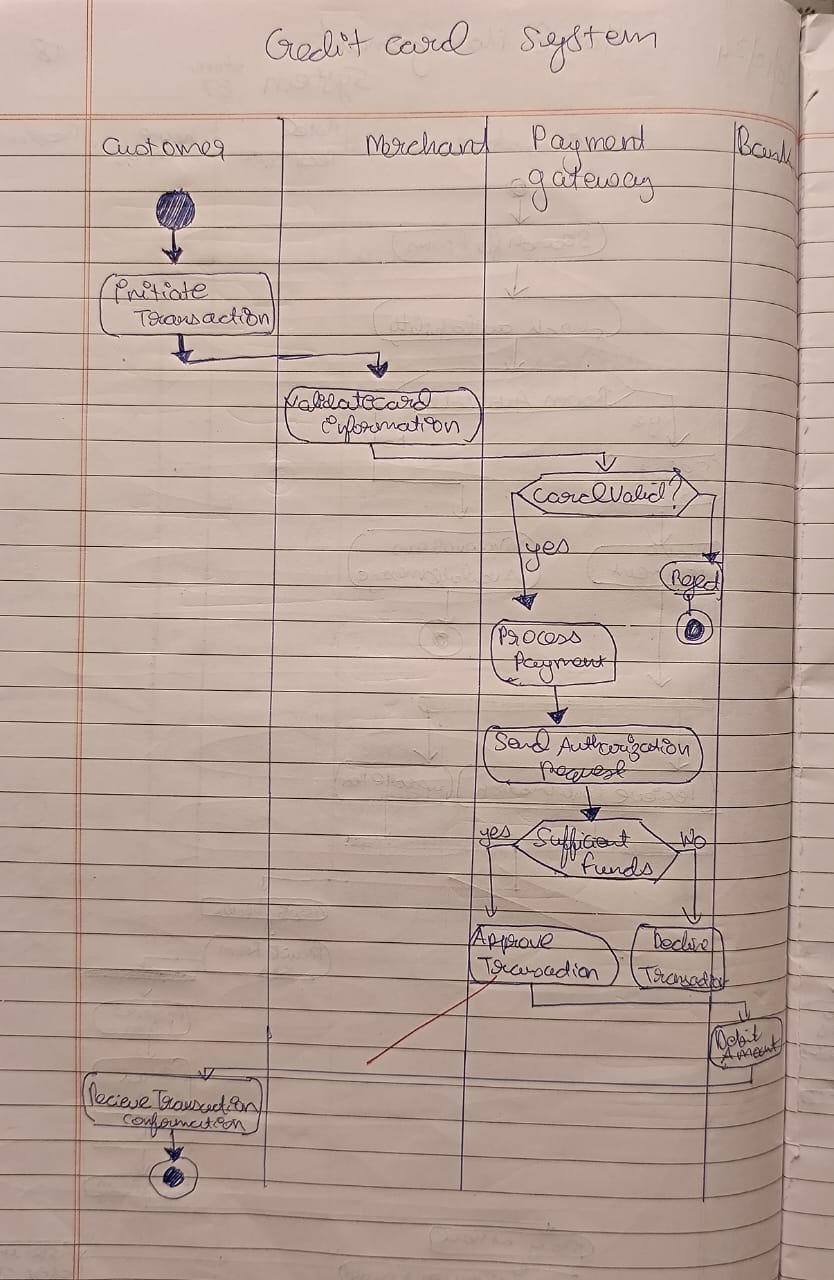 Credit card system
Customer
Merchand
Payment
gateway
Bank
Initiate
Transaction
Validate card
Information
Card Valid?
yes
Reject
Process
Payment
Send Authorization
request
yes
Sufficient
funds
No
Approve
Transaction
Decline
Transaction
Debit
Amount
Recieve Transaction
conformation